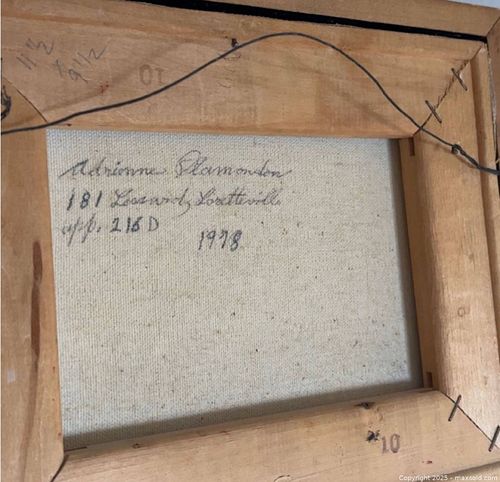 11 1/2
x 9 1/2
10
Adrienne Plamondon
181 Lessard, Loretteville
app. 216D
1978
10
Copyright 2025 - maxsold.com